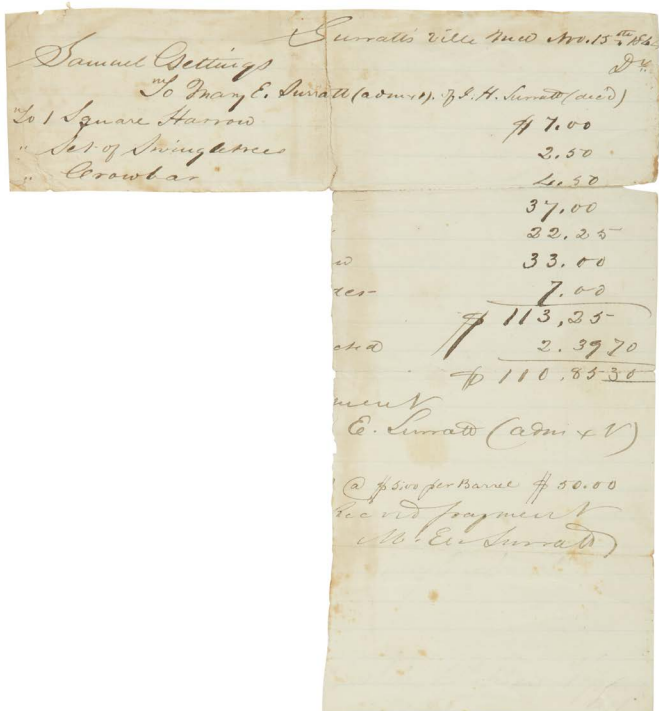 Surratts Ville Md Nov. 15th 186
Samuel Gettings Dr.
To Mary E. Surratt (admxt). of J. H. Surratt (decd)
To 1 Square Harrow $ 7.00
" Set of Swingletrees 2.50
" Crowbar 4.50
37.00
22.25
33.00
7.00
$ 113,25
cted 2.3970
$ 110.8530
ment
E. Surratt (admxt)
@ $5.00 per Barrel $ 50.00
Recevd payment
M. E. Surratt